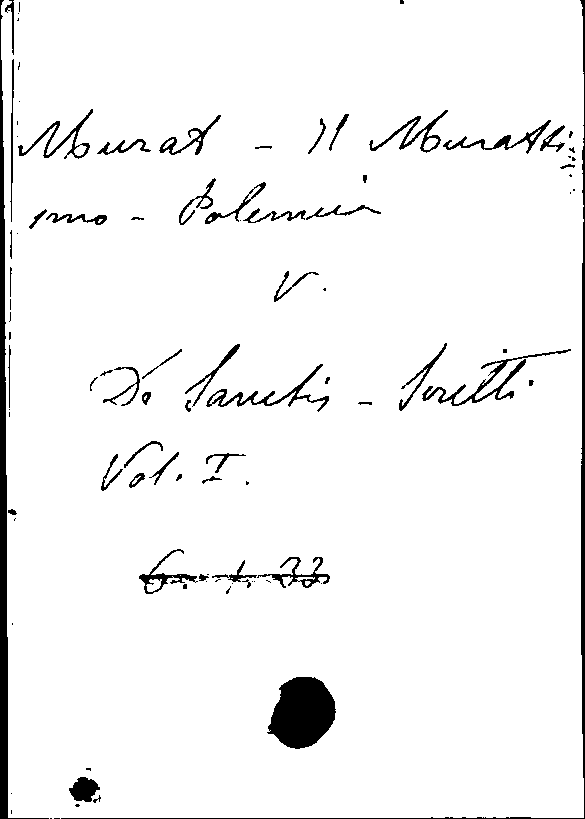 Murat - Il Muratti
smo - Polemica
V.
De Sanctis - Scritti
Vol. I.
6. 1. 33